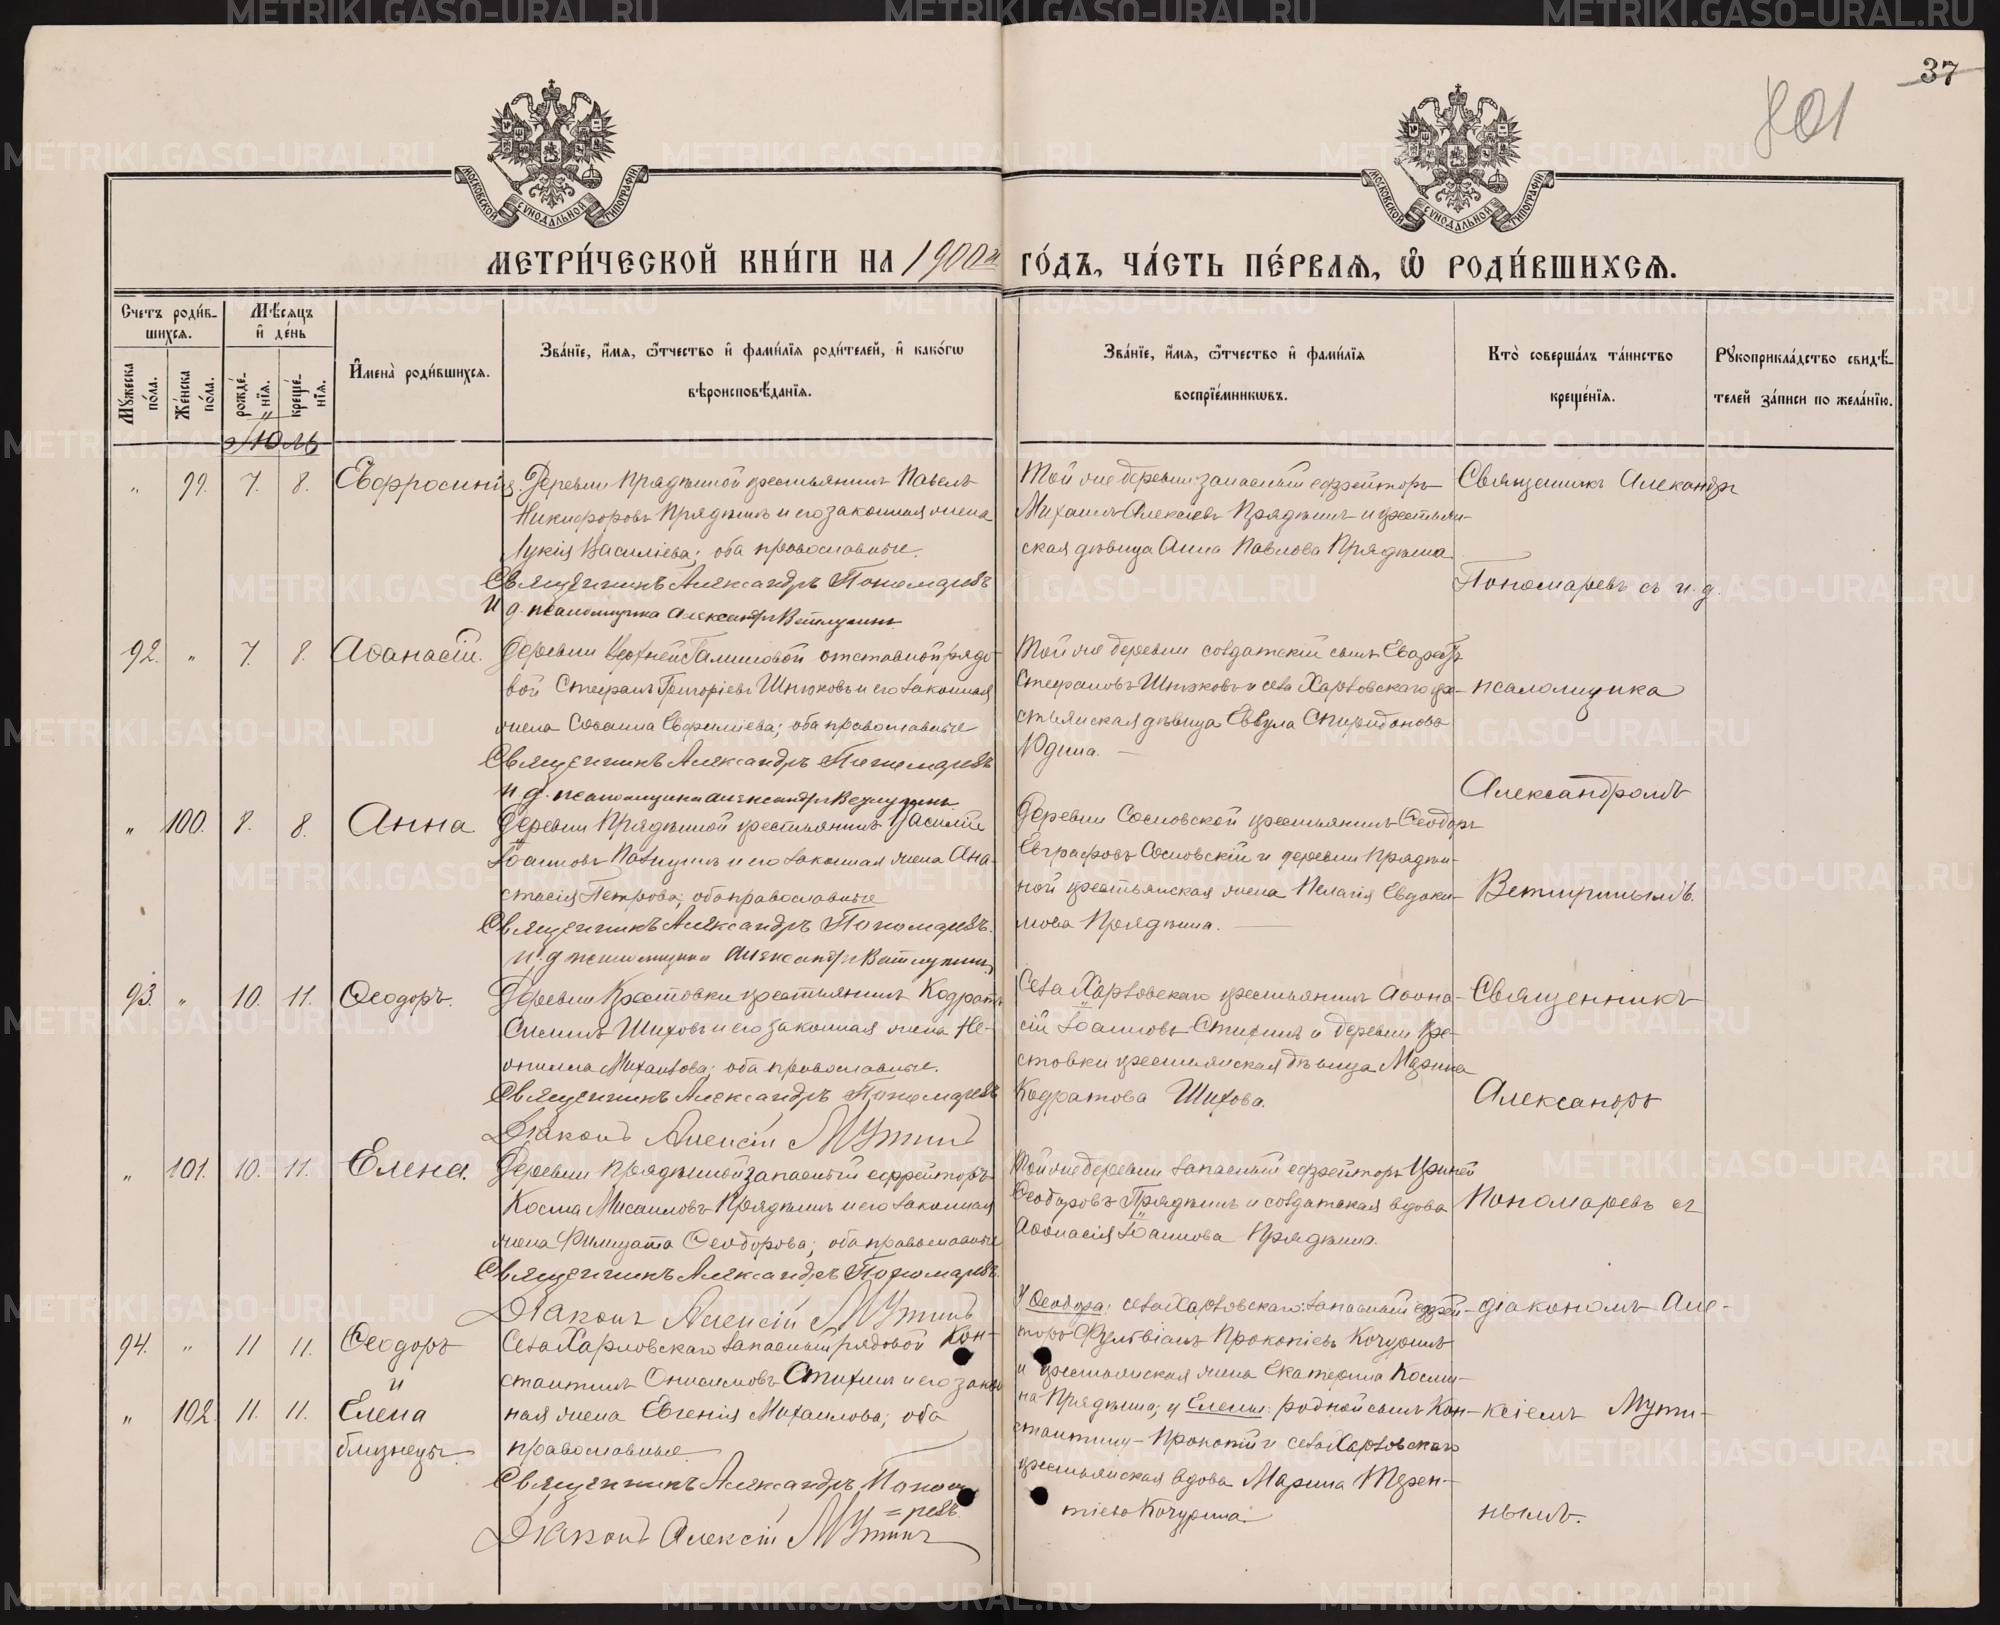 37
801
МОСКОВСКОЙ СѴНОДАЛЬНОЙ ТИПОГРАФІИ
МОСКОВСКОЙ СѴНОДАЛЬНОЙ ТИПОГРАФІИ
МЕТРИ́ЧЕСКОЙ КНИ́ГИ НА 1900й ГО́ДЪ, ЧА́СТЬ ПЕ́РВАѦ, Ѡ҆ РОДИ́ВШИХСѦ.
Счетъ роди́в-
шихсѧ.
Мѣ́сѧцъ
и҆ де́нь
Мꙋ́жеска по́ла.
Же́нска по́ла.
рожде́-
нїѧ.
креще́-
нїѧ.
И҆мена̀ роди́вшихсѧ.
Зва́нїе, и҆́мѧ, ѻ҆́тчество и҆ фами́лїѧ роди́телей, и҆ како́гѡ
вѣроисповѣ́данїѧ.
Зва́нїе, и҆́мѧ, ѻ҆́тчество и҆ фами́лїѧ
воспрїе́мникѡвъ.
Кто̀ соверша́лъ та́инство
креще́нїѧ.
Рꙋкоприкла́дство свидѣ́-
телей за́писи по жела́нїю.
Іюль
" 99. 7. 8. Евфросинія.
Деревни Прядѣиной крестьянинъ Павелъ
Никифоровъ Прядѣинъ и его законная жена
Лукія Василіева; оба православные.
Священникъ Александръ Пономаревъ
И. д. псаломщика Александръ
Той же деревни запасный ефрейторъ
Михаилъ Алексіевъ Прядѣинъ и крестьян-
ская дѣвица Анна Павлова Прядѣина
Священникъ Александръ
Пономаревъ съ и. д.
92. " 7. 8. Аѳанасій.
Деревни отставной рядо-
вой Стефанъ Григоріевъ Шнюковъ и его законная
жена Сосанна Евфиміева; оба православные
Священникъ Александръ Пономаревъ
и. д. псаломщика Александръ
Той же деревни солдатскій сынъ Еварестъ
Стефановъ Шнюковъ и села Харловскаго кре-
стьянская дѣвица Еввула Спиридонова
Юдина.
псаломщика
Александромъ
" 100. 8. 8. Анна
Деревни Прядѣиной крестьянинъ Василій
Іоанновъ и его законная жена Ана-
стасія Петрова; оба православные
Священникъ Александръ Пономаревъ.
и. д. псаломщика Александръ
Деревни Сосновской крестьянинъ Ѳеодоръ
Евграфовъ Сосновскій и деревни Прядѣи-
ной крестьянская жена Пелагія Евдоки-
мова Прядѣина.
93. " 10. 11. Ѳеодоръ.
Деревни Крестовки крестьянинъ Кодратъ
Шиховъ и его законная жена Не-
онилла Михаилова; оба православные.
Священникъ Александръ Пономаревъ
Діаконъ Алексій Мутинъ
Села Харловскаго крестьянинъ Аѳана-
сій Іоанновъ Стихинъ и деревни Кре-
стовки крестьянская дѣвица Марина
Кодратова Шихова.
Священникъ
Александръ
" 101. 10. 11. Елена.
Деревни Прядѣиной запасный ефрейторъ
Косма Мисаиловъ Прядѣинъ и его законная
жена Ѳеодорова; оба православные
Священникъ Александръ Пономаревъ.
Діаконъ Алексій Мутинъ
Той же деревни запасный ефрейторъ Ириней
Ѳеодоровъ Прядѣинъ и солдатская вдова
Аѳанасія Іоаннова Прядѣина.
Пономаревъ съ
94. " 11 11. Ѳеодоръ
и
" 102. 11. 11. Елена
близнецы.
Села Харловскаго запасный рядовой Кон-
стантинъ Онисимовъ Стихинъ и его закон
ная жена Евгенія Михаилова; оба
православные
Священникъ Александръ Понома
=ревъ.
Діаконъ Алексій Мутинъ
У Ѳеодора: села Харловскаго запасный ефрей-
торъ Фулвіанъ Прокопіевъ Кочуринъ
и крестьянская жена Екатерина Косми-
на Прядѣина; у Елены: родной сынъ Кон-
стантину – Прокопій и села Харловскаго
крестьянская вдова Марина Терен-
тіева Кочурина.
діакономъ Але-
ксіемъ Мути-
нымъ.